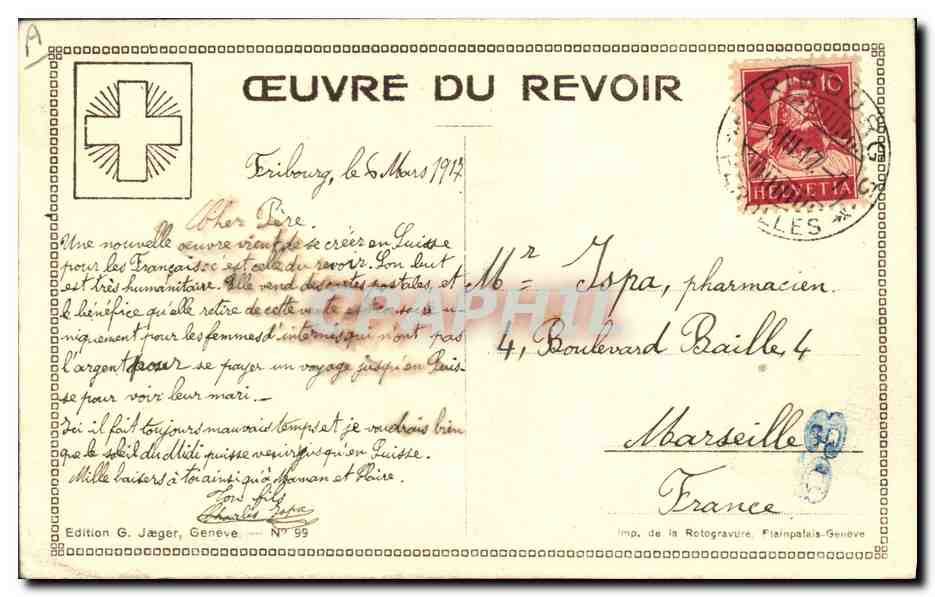 A
ŒUVRE DU REVOIR
10
HELVETIA
Fribourg, le 6 Mars 1917
Cher Père.
Une nouvelle œuvre vient de se créer en Suisse
pour les Français: c'est celle du revoir. Son but
est très humanitaire. Elle vend des cartes postales, et
le bénéfice qu'elle retire de cette vente est consacré u-
niquement pour les femmes d'internés qui n'ont pas
l'argent pour se payer un voyage jusqu'en Suis-
se pour voir leur mari. —
Ici il fait toujours mauvais temps et je voudrais bien
que le soleil du Midi puisse venir jusqu'en Suisse.
Mille baisers à toi ainsi qu'à Maman et Claire.
Ton fils
Charles Ispa
Mr Ispa, pharmacien.
4, Boulevard Baille, 4
Marseille
France
CPAPHIL
Edition G. Jæger, Genève. — No 99
Imp. de la Rotogravure, Plainpalais-Genève